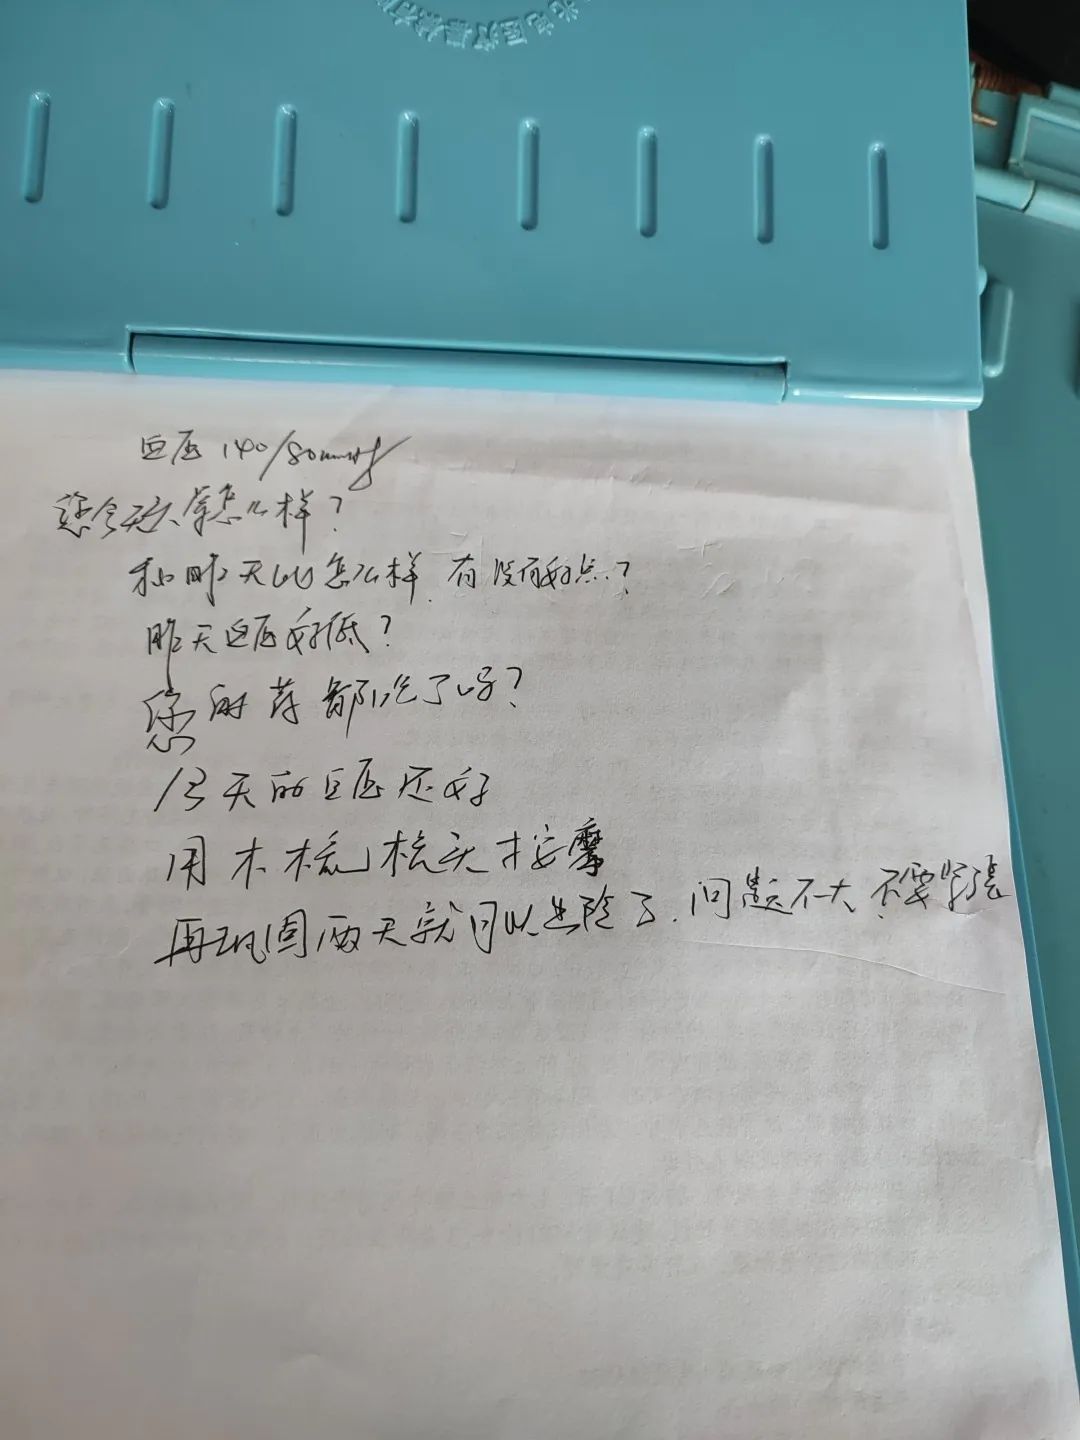 光电医疗器械有限
血压140/80mmHg
您今天感觉怎么样?
和昨天比怎么样,有没有好点?
昨天血压好低?
您的药都吃了吗?
今天的血压还好
用木梳梳头按摩
再巩固两天就可以出院了.问题不大,不要紧张